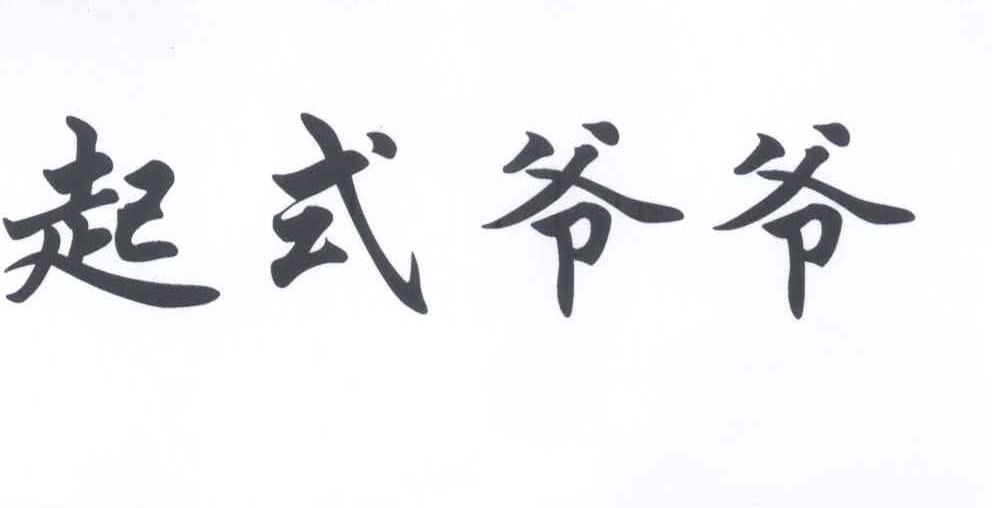 起式爷爷